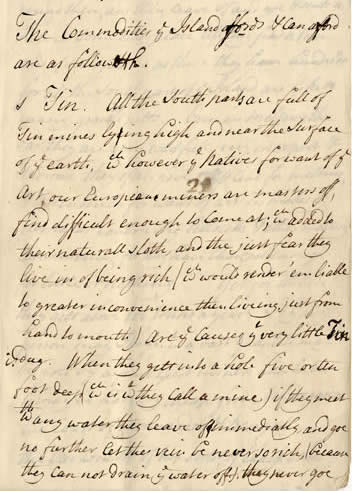 The Commodities yͤ Island affords & can afford
are as followeth.
s Tin. All the South parts are full of
Tin mines lying high and near the surface
of yͤ earth, wͨʰ however yͤ Natives for want of yͤ
Art, our European miners are masters off,
find difficult enough to come at; wͨʰ added to
their naturall sloth and the just fear they
live in of being rich (wͨʰ would render 'em liable
to greater inconvenience then living just from
hand to mouth) Are yͤ Causes yͭ very little Tin
is dug. When they gett into a hole five or ten
foot deep (wͨʰ is wͭ they call a mine) if they meet
wͭʰ any water they leave off immediatly and goe
no further let the vein be never so rich, (because
they can not drain yͤ water off), they never goe